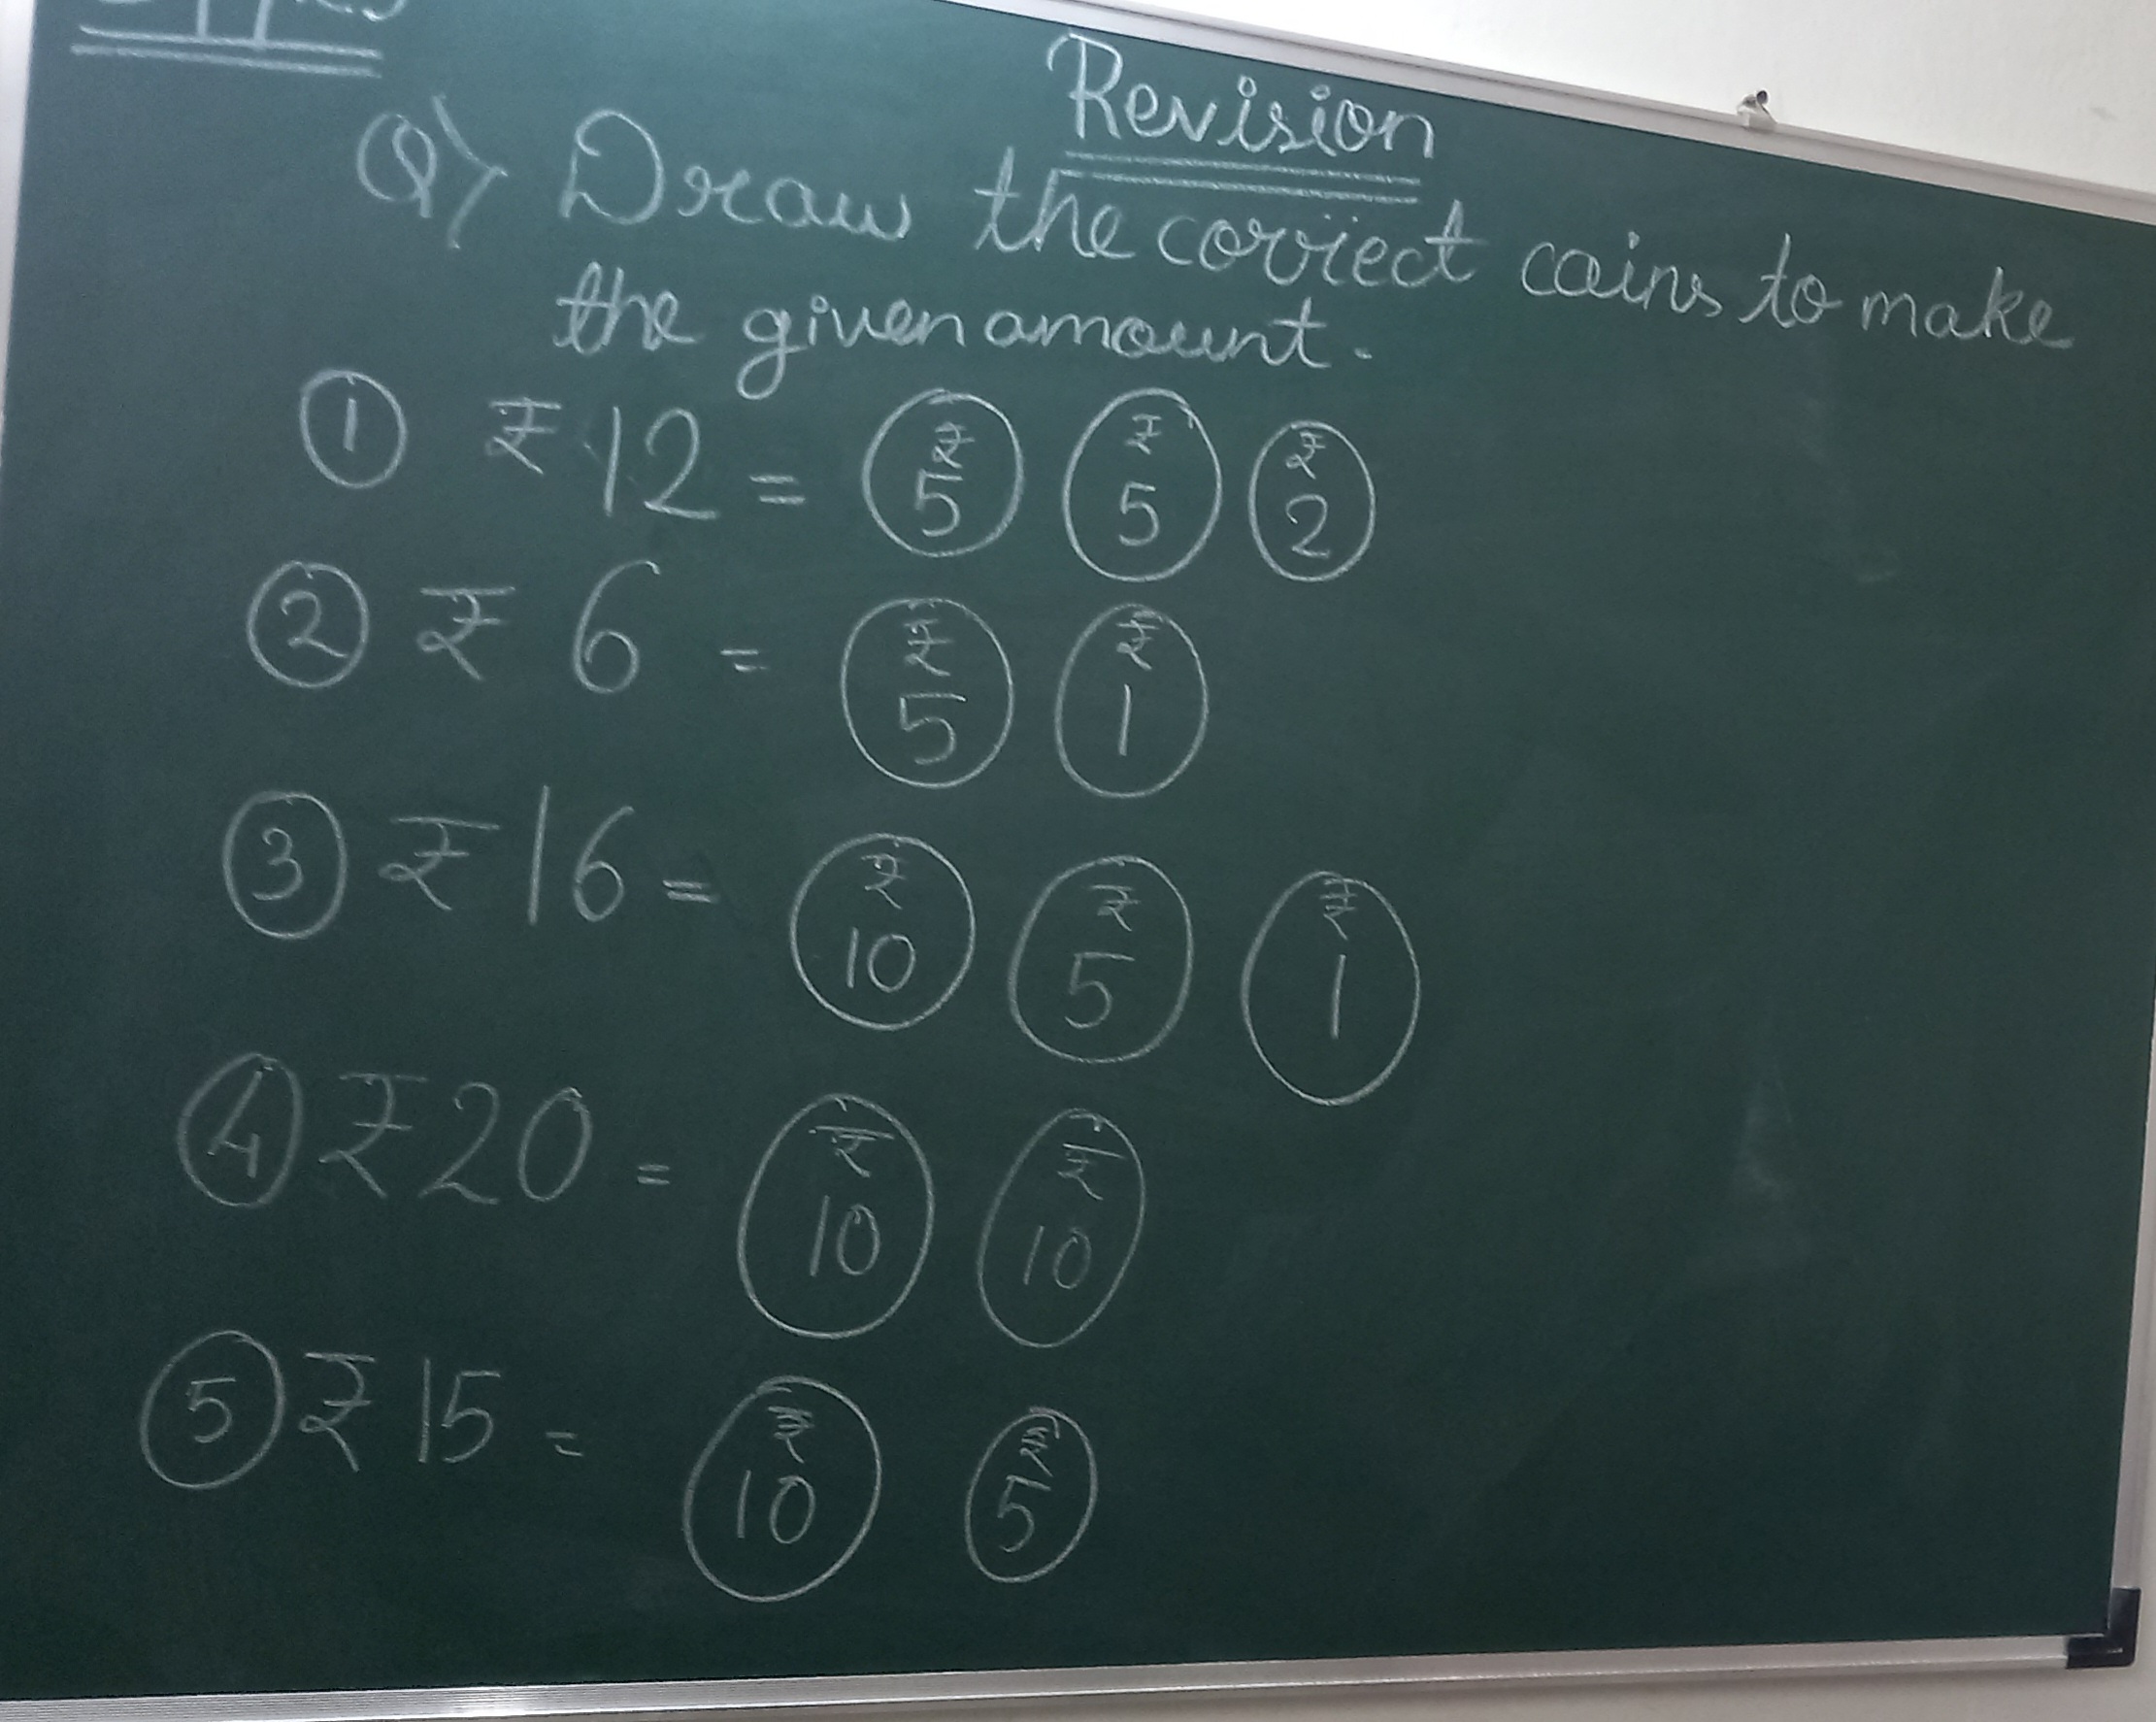 Revision
Q) Draw the correct coins to make
the given amount.
① ₹12 = ₹5 ₹5 ₹2
② ₹6 = ₹5 ₹1
③ ₹16 = ₹10 ₹5 ₹1
④ ₹20 = ₹10 ₹10
⑤ ₹15 = ₹10 ₹5